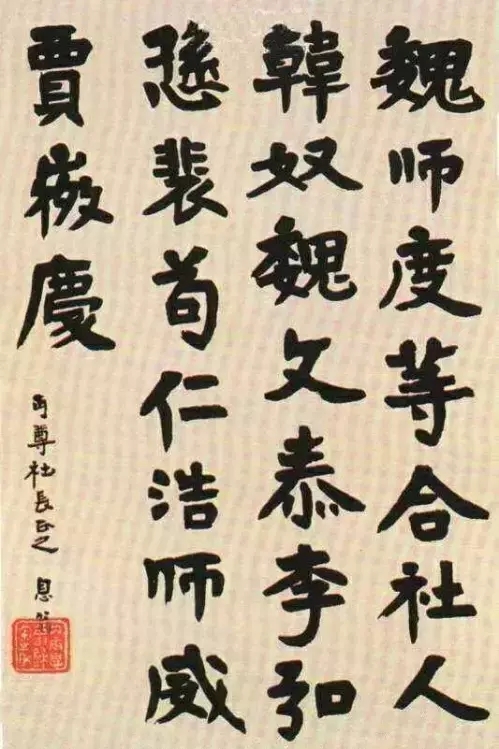 魏师度等合社人
韓奴魏文泰李弘
愻裴苟仁浩师威
賈敬慶
丏尊社長正之 息翁